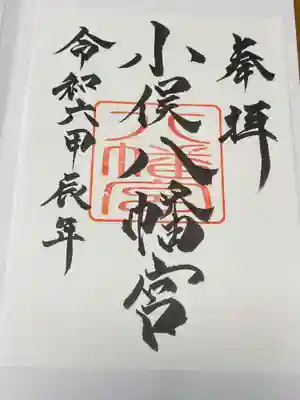 奉拝
小俣八幡宮
令和六甲辰年
八幡宮